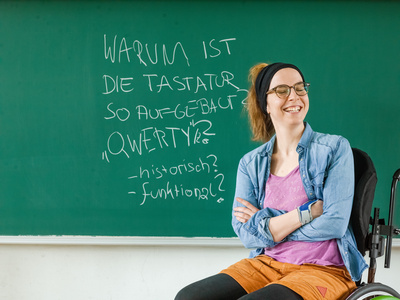 WARUM IST
DIE TASTATUR
SO AUFGEBAUT?
"QWERTY"?
-historisch?
-funktional?